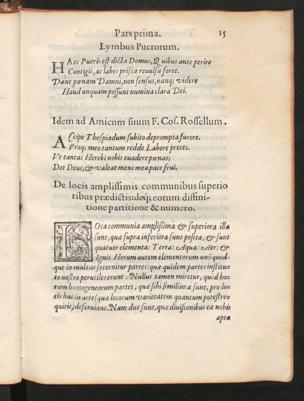 Pars prima. 15
Lymbus Puerorum.
HAec Pueris est dicta Domus, Quibus ante perire
Contigit, ac labes prisca reuulsa foret.
Dant pœnam Damni, non sensus, nanq; videre
Haud unquam possunt numina clara Dei.
Idem ad Amicum suum F. Cos. Rossellum.
ACcipe Thespiadum subito deprompta furore.
Proq; meo tantum redde Labore preces.
Ve tantas Herebi nobis euadere pœnas;
Det Deus, & valeat mens mea pace frui.
De locis amplissimis communibus superio
ribus prædictis: deq; eorum diffini-
tione partitione & numero.
LOca communia amplissima & superiora illa
sunt, quæ supra inferiora sunt posita, & sunt
quatuor elementa: Terra: Aqua: Aer: &
Ignis. Horum autem elementorum unūquod-
que in multas secernitur partes: quæ quidem partes institu
to nostro perutiles erunt. Nullus tamen miretur, quòd ho
rum homogeneorum partes, quæ sibi similimæ sunt, pro lo
cis hac in arte (quæ locorum varietatem quantum potest re
quirit) deseruiant. Nam duo sunt, quæ diuisionibus ea nobis
apta